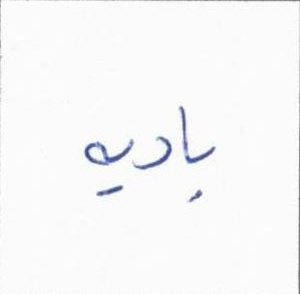 باديه